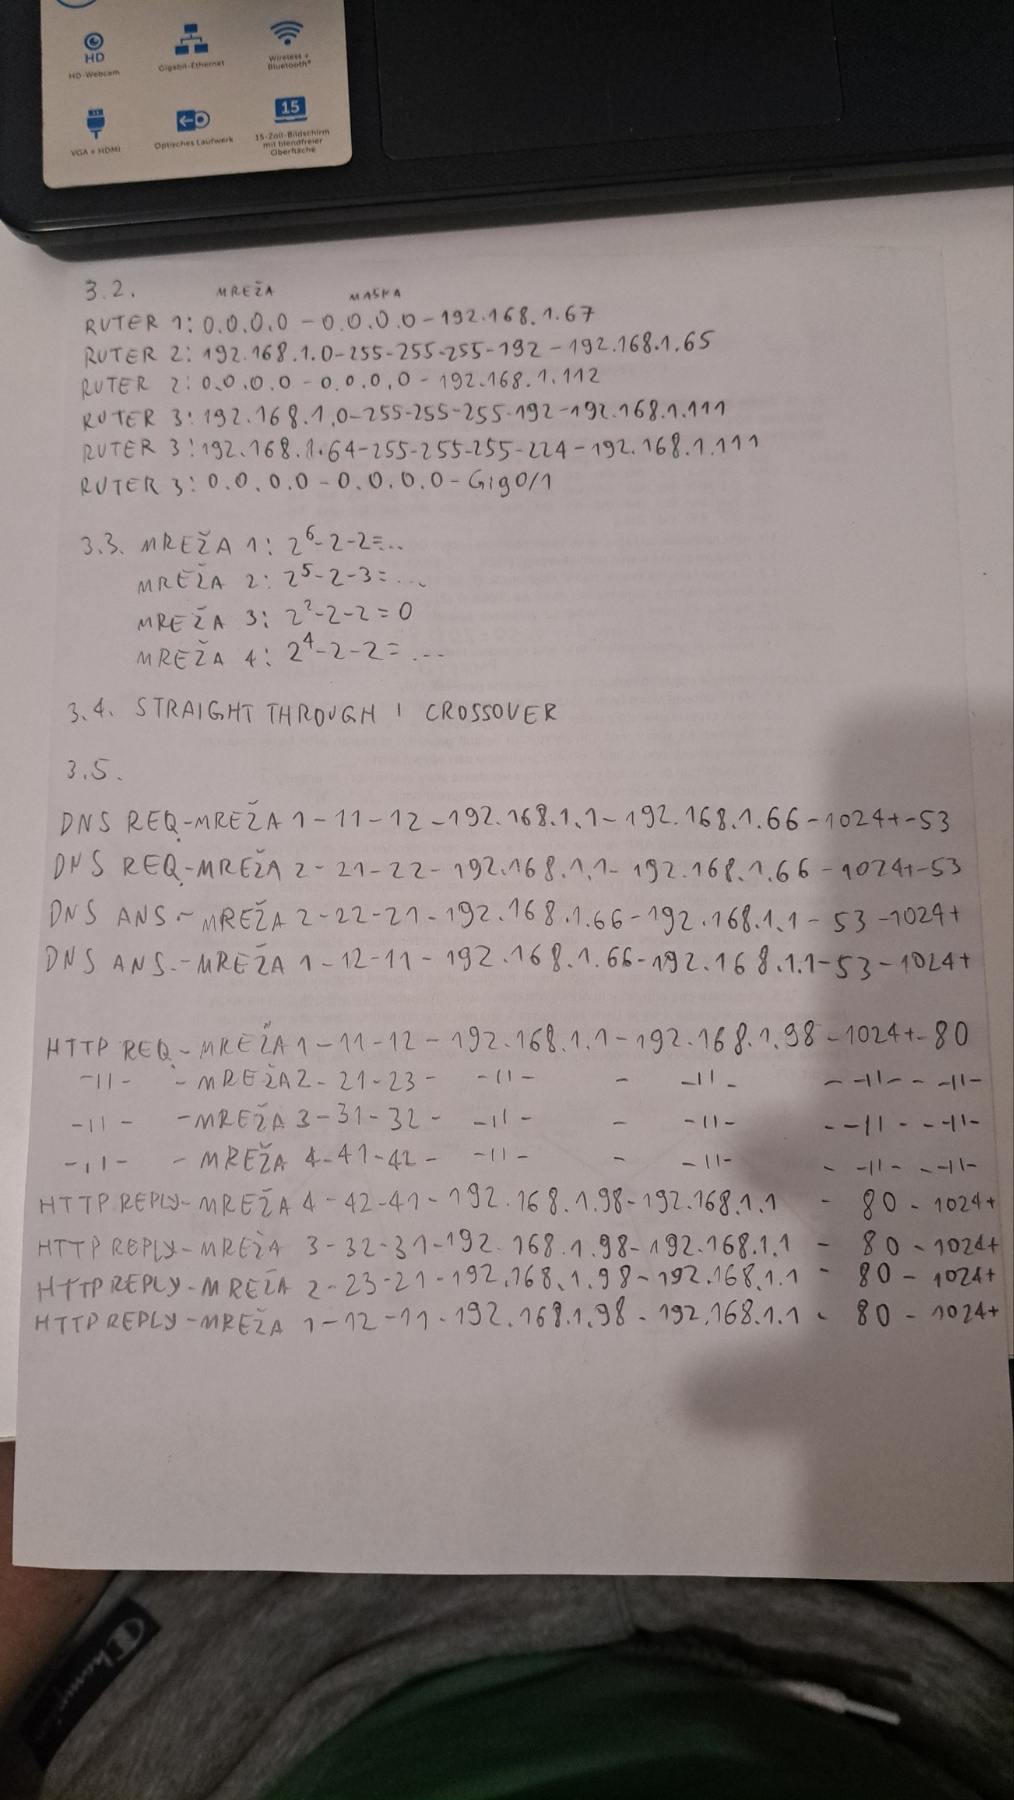 HD
HD-Webcam
Gigabit-Ethernet
Wireless +
Bluetooth®
VGA + HDMI
Optisches Laufwerk
15
15-Zoll-Bildschirm
mit blendfreier
Oberfläche
3.2. MREŽA MASKA
RUTER 1: 0.0.0.0 - 0.0.0.0 - 192.168.1.67
RUTER 2: 192.168.1.0-255-255-255-192 - 192.168.1.65
RUTER 2: 0.0.0.0 - 0.0.0.0 - 192.168.1.112
RUTER 3: 192.168.1.0-255-255-255-192-192.168.1.111
RUTER 3: 192.168.1.64-255-255-255-224-192.168.1.111
RUTER 3: 0.0.0.0 - 0.0.0.0 - Gig0/1
3.3. MREŽA 1: 2^6-2-2=...
MREŽA 2: 2^5-2-3=...
MREŽA 3: 2^2-2-2=0
MREŽA 4: 2^4-2-2=...
3.4. STRAIGHT THROUGH I CROSSOVER
3.5.
DNS REQ.-MREŽA 1-11-12-192.168.1.1-192.168.1.66-1024+-53
DNS REQ.-MREŽA 2-21-22-192.168.1.1-192.168.1.66-1024+-53
DNS ANS-MREŽA 2-22-21-192.168.1.66-192.168.1.1-53-1024+
DNS ANS.-MREŽA 1-12-11-192.168.1.66-192.168.1.1-53-1024+
HTTP REQ-MREŽA 1-11-12-192.168.1.1-192.168.1.98-1024+-80
-11- -MREŽA 2-21-23- -11- - -11- - -11- - -11-
-11- -MREŽA 3-31-32- -11- - -11- - -11- - -11-
-11- -MREŽA 4-41-42- -11- - -11- - -11- - -11-
HTTP REPLY-MREŽA 4-42-41-192.168.1.98-192.168.1.1 - 80-1024+
HTTP REPLY-MREŽA 3-32-31-192.168.1.98-192.168.1.1 - 80-1024+
HTTP REPLY-MREŽA 2-23-21-192.168.1.98-192.168.1.1 - 80-1024+
HTTP REPLY-MREŽA 1-12-11-192.168.1.98-192.168.1.1 - 80-1024+